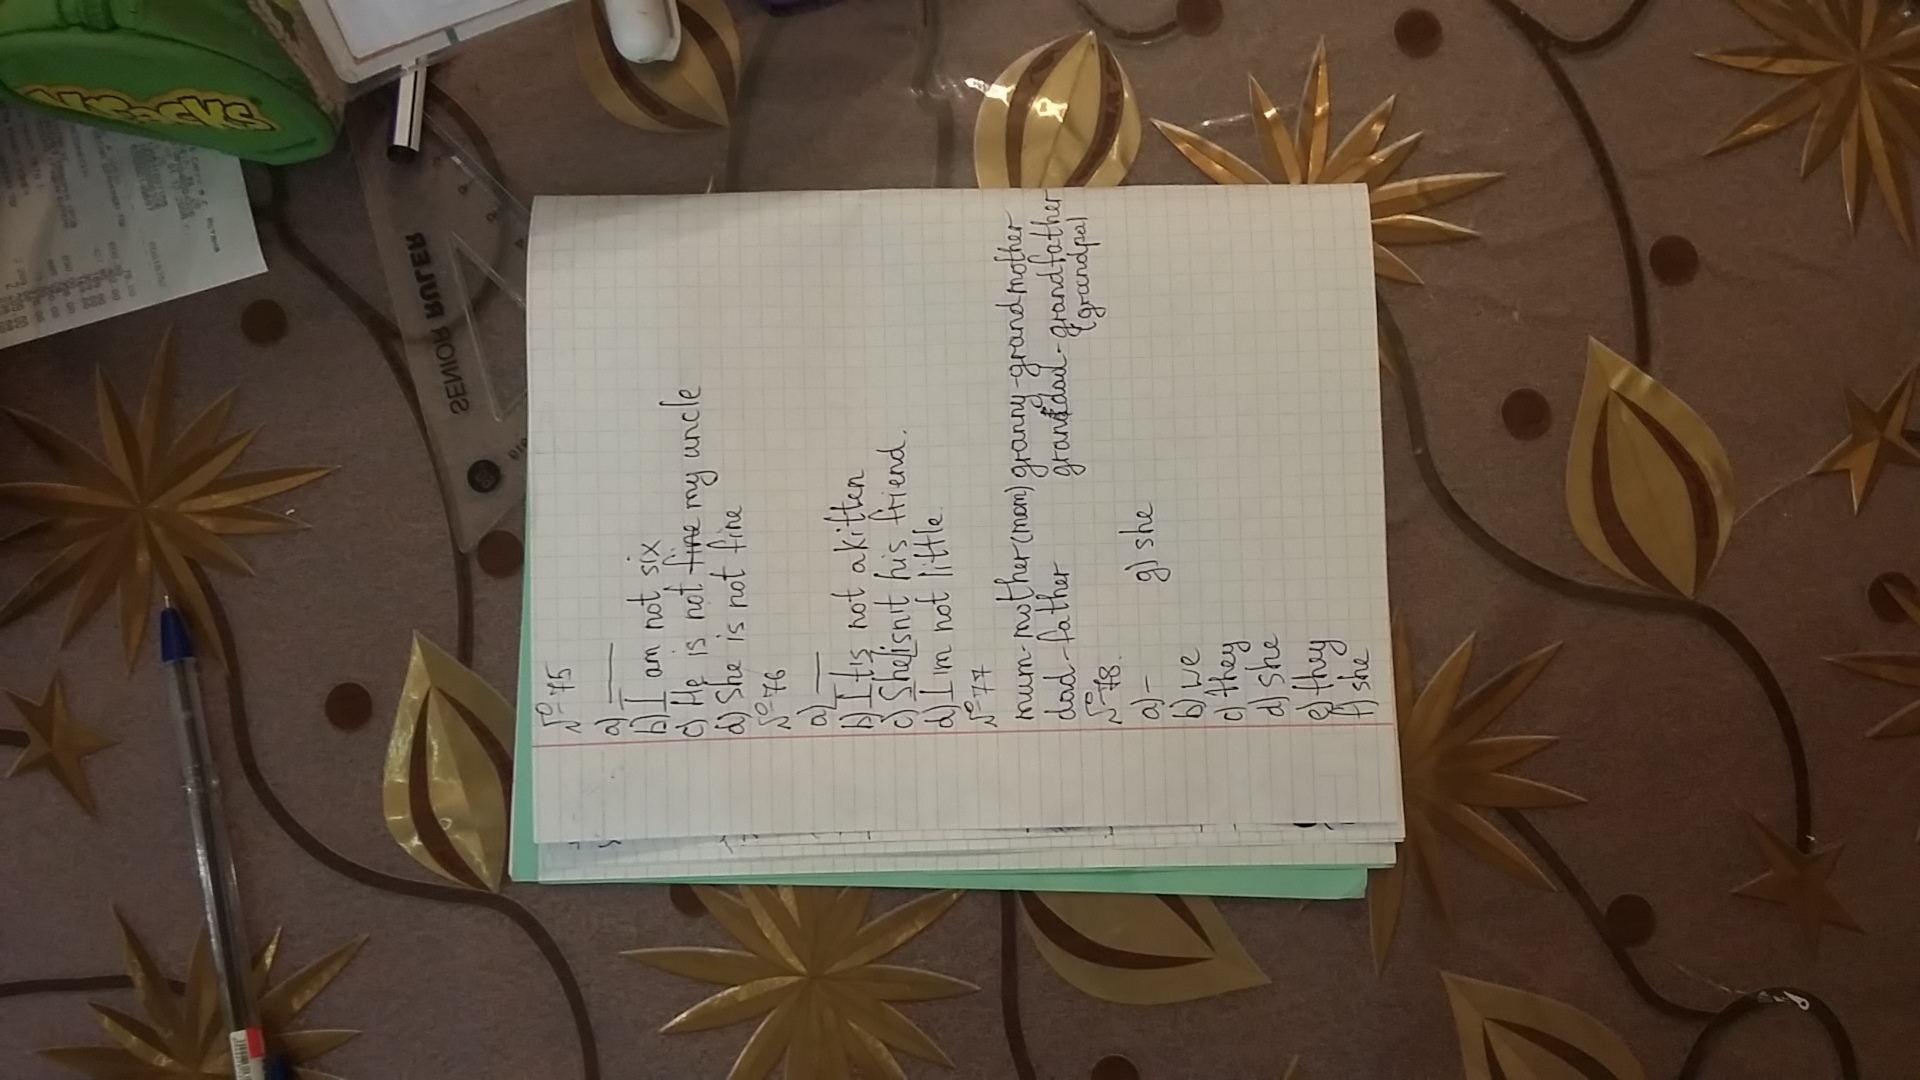 №75
a) ___
b) I am not six
c) He is not fine my uncle
d) She is not fine
№76
a) ___
b) It is not a kitten
c) She isn't his friend.
d) I'm not little.
№77
mum-mother (mom) granny-grandmother
dad-father granddad-grandfather
(grandpa)
№78.
a) -
b) we
c) they
d) she
e) they
f) she
g) she
SENIOR RULER